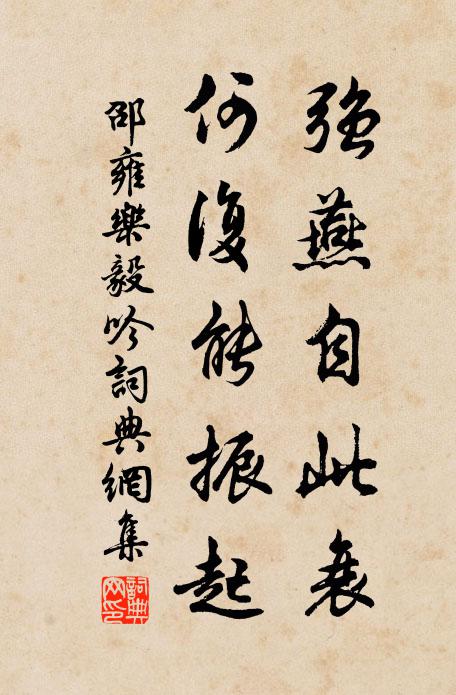 強燕自此衰
何復能振起
邵雍樂毅吟詞典網集
詞典網印